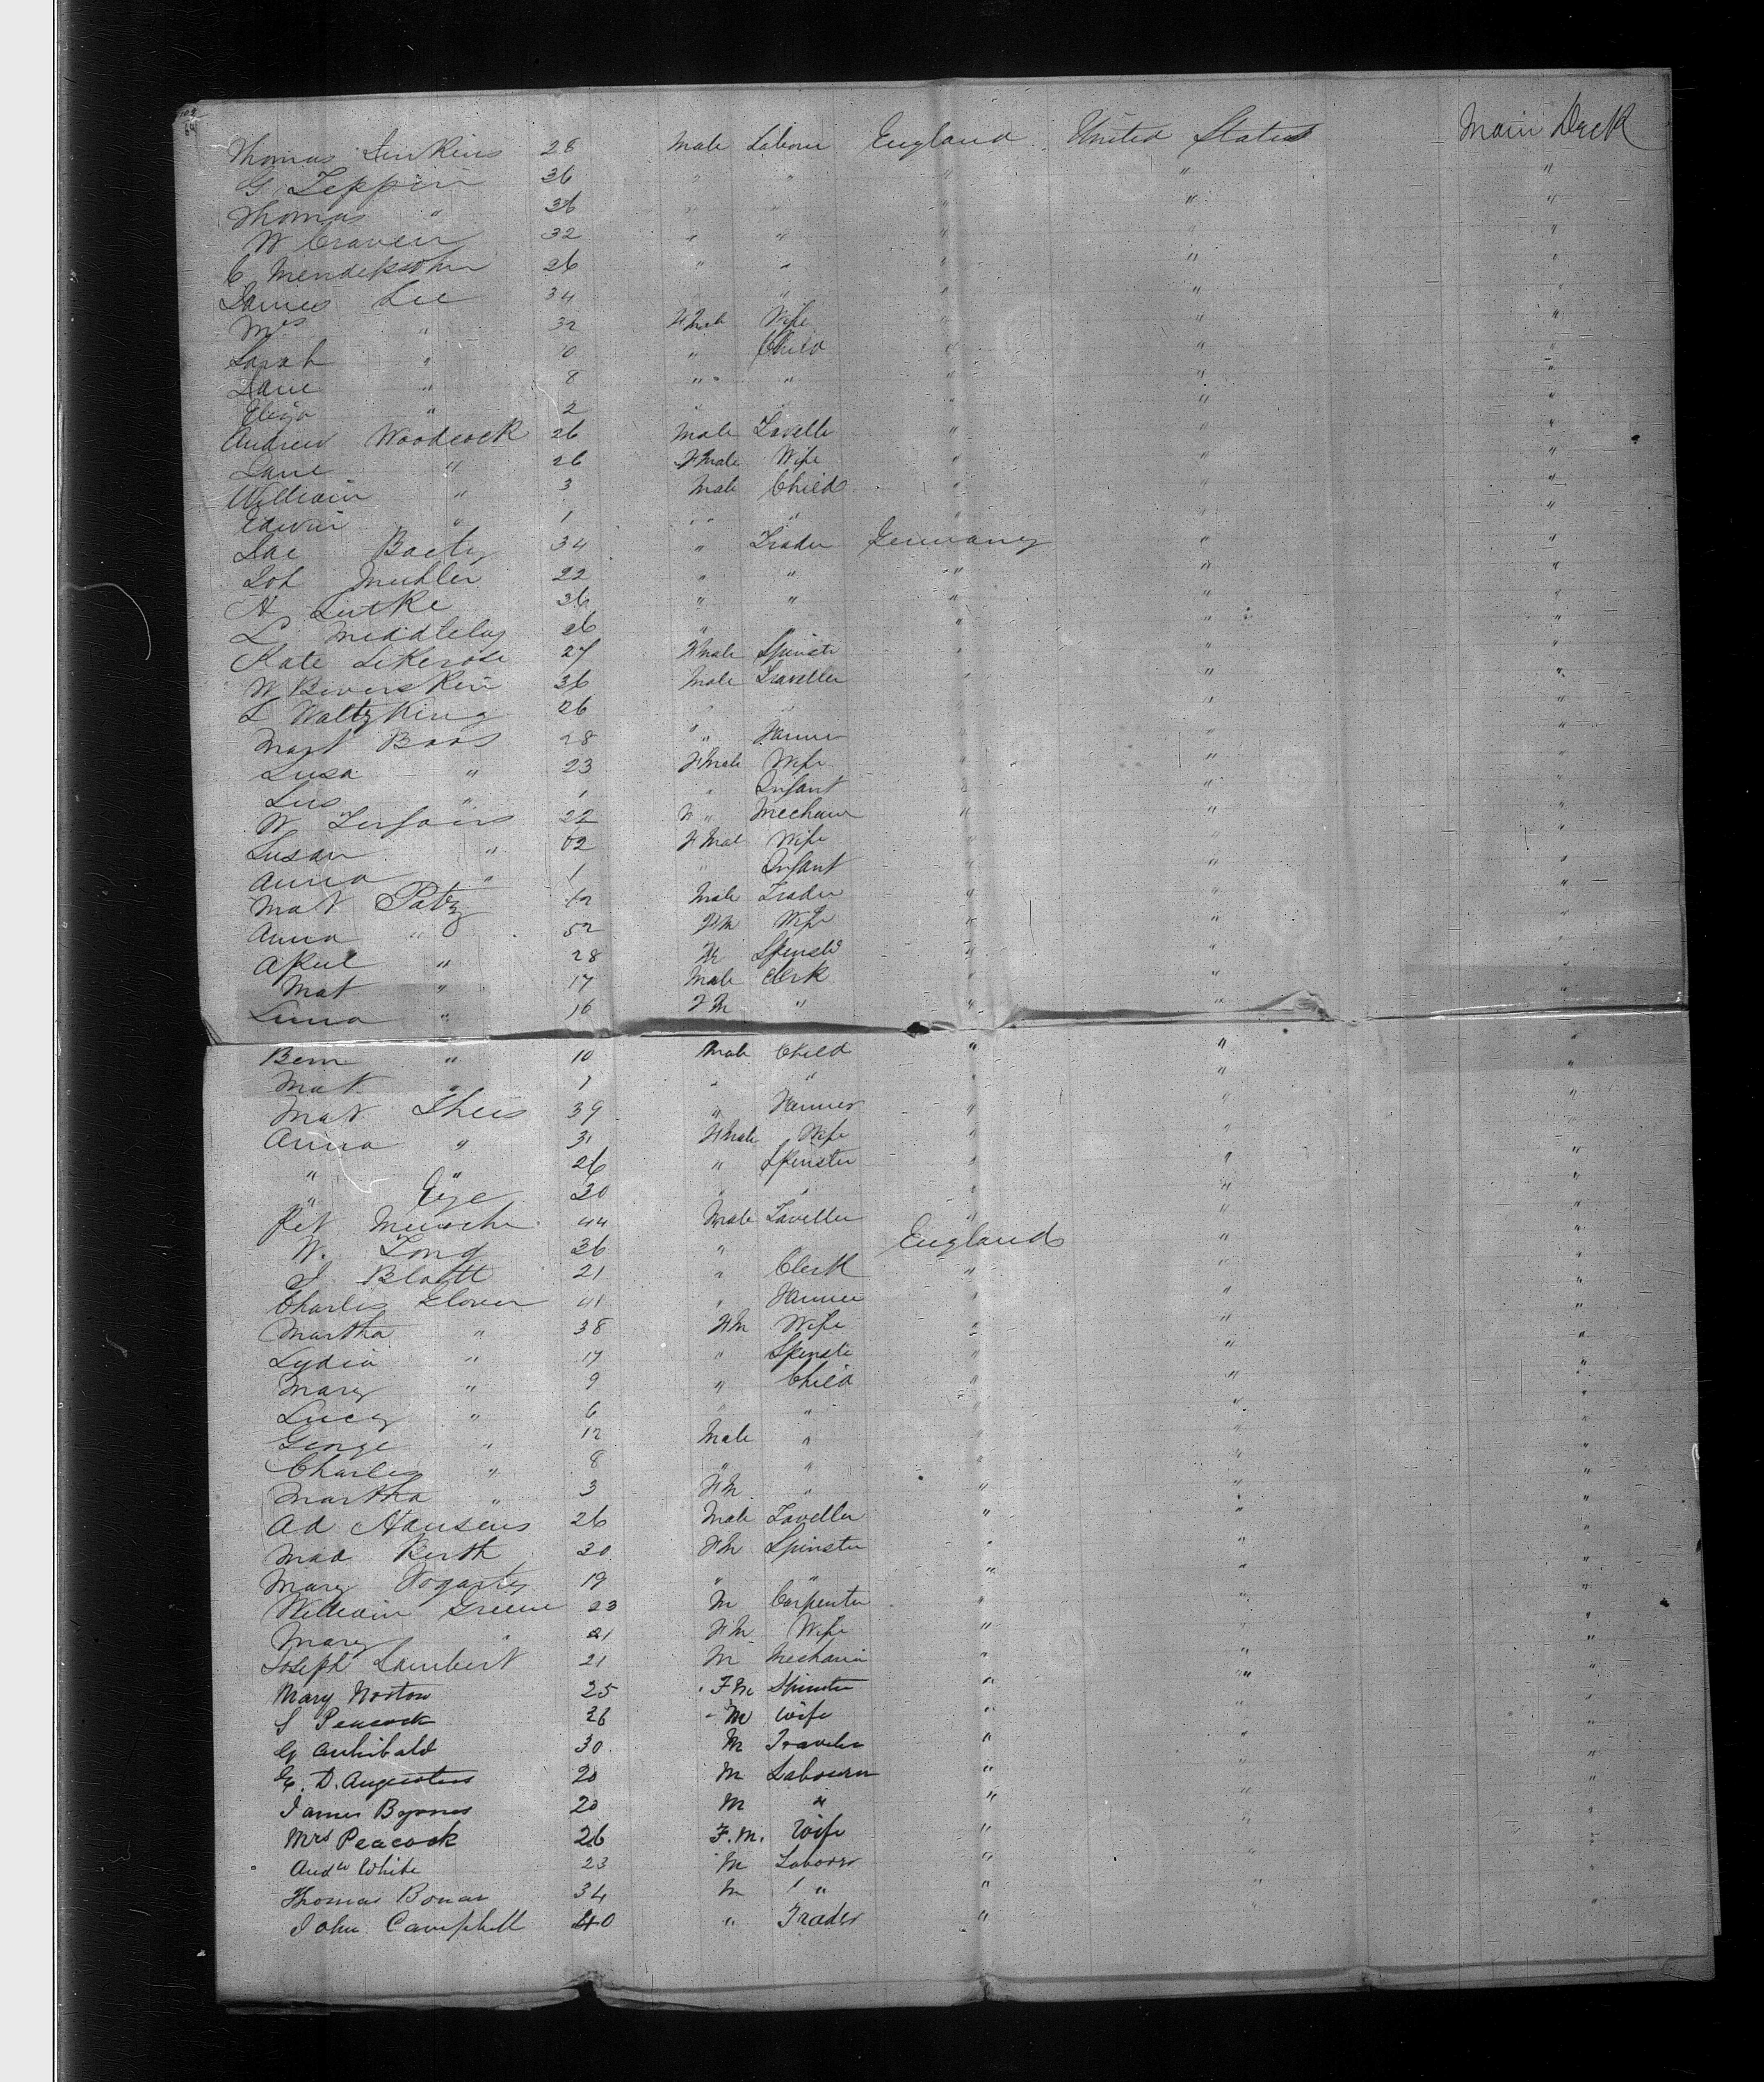 Thomas Jenkins 28 Male Labour England United States Main Deck
G. Teppin 36 " " " " "
Thomas " 36 " " " " "
W Craven 32 " " " " "
C Mendelssohn 26 " " " " "
James Lee 34 " " " " "
Mrs " 32 FMale Wife " " "
Sarah " 10 " Child " " "
Jane " 8 " " " " "
Eliza " 2 " " " " "
Andrew Woodcock 26 Male Traveller " " "
Jane " 26 FMale Wife " " "
William " 3 Male Child " " "
Edwin " 1 " " " " "
Jac 34 " Trader Germany " "
Joh Muhler 22 " " " " "
H Lutke 36 " " " " "
L. 26 " " " " "
Kate 27 FMale Spinster " " "
W 36 Male Traveller " " "
L Waltzking 26 " " " " "
Mart Baas 28 " Farmer " " "
Lusa " 23 FMale Wife " " "
" 1 " Infant " " "
W 22 M " Mechanic " " "
Susan " FMale Wife " " "
Anna " 1 " Infant " " "
Mat Patz Male Trader " " "
Anna " 52 FM Wife " " "
" 28 FM Spinster " " "
Mat " 17 Male Clerk " " "
Lena " 16 FM " " " "
Bern " 10 Male Child " " "
Mat " " " " " "
Mat Theis 39 " Farmer " " "
Anna " 31 FMale Wife " " "
" " 26 " Spinster " " "
" 30 " " " " "
Pet 44 Male Traveller " " "
W. Long 36 " England " "
J. Blatt 21 " Clerk " " "
Charles Glover 41 " Farmer " " "
Martha " 38 FM Wife " " "
Lydia " 17 " Spinster " " "
Mary " 9 " Child " " "
Lucy " 6 " " " " "
George " 12 Male " " " "
Charles " 8 " " " " "
Martha " 3 FM " " " "
Ad Hansens 26 Male Traveller " " "
Mad Kerth 30 FM Spinster " " "
Mary Hogarty 19 " " " " "
William Greene 23 M Carpenter " " "
Mary " 21 FM Wife " " "
Joseph Lambert 21 M Mechanic " " "
Mary Norton 25 FM Spinster " " "
S Peacock 36 M Wife " " "
G Archibald 30 M Traveler " " "
G. D. Augustus 20 M Labourer " " "
James Byrnes 20 M " " " "
Mrs Peacock 26 F.M. Wife " " "
Andw White 23 M Laborer " " "
Thomas Bonar 34 M " " " "
John Campbell 40 " Trader " " "